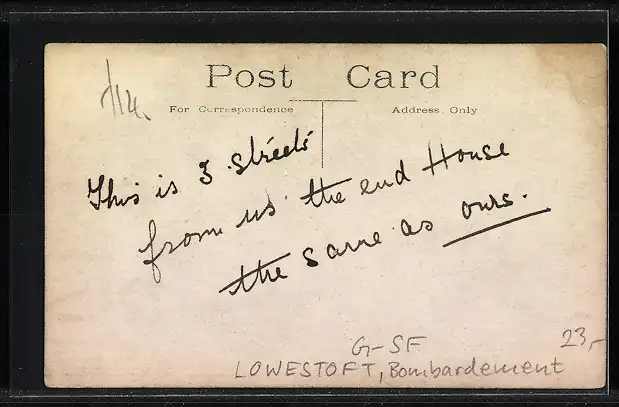 Post Card
For Correspondence
Address Only
This is 3 streets
from us the end House
the same as ours.
G-SF
23,-
LOWESTOFT, Bombardement